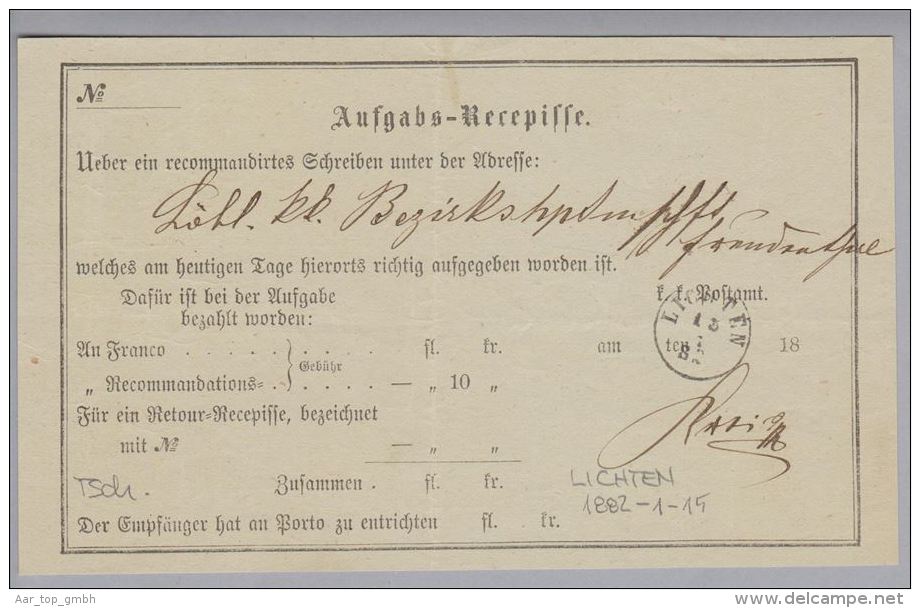 №
Aufgabs-Recepisse.
Ueber ein recommandirtes Schreiben unter der Adresse:
Löbl. kk. Bezirkshptmschft
Freudenthal
welches am heutigen Tage hierorts richtig aufgegeben worden ist.
Dafür ist bei der Aufgabe
bezahlt worden:
k. k. Postamt.
LICHTEN
An Franco . . . . . . . . . fl. kr.
Gebühr
am ten 18
„ Recommandations- . . . . . — „ 10 „
Für ein Retour-Recepisse, bezeichnet
mit № — „ „
Zusammen . fl. kr.
Tsch.
LICHTEN
1882-1-15
Der Empfänger hat an Porto zu entrichten fl. kr.
Aar_top_gmbh
delcampe.net